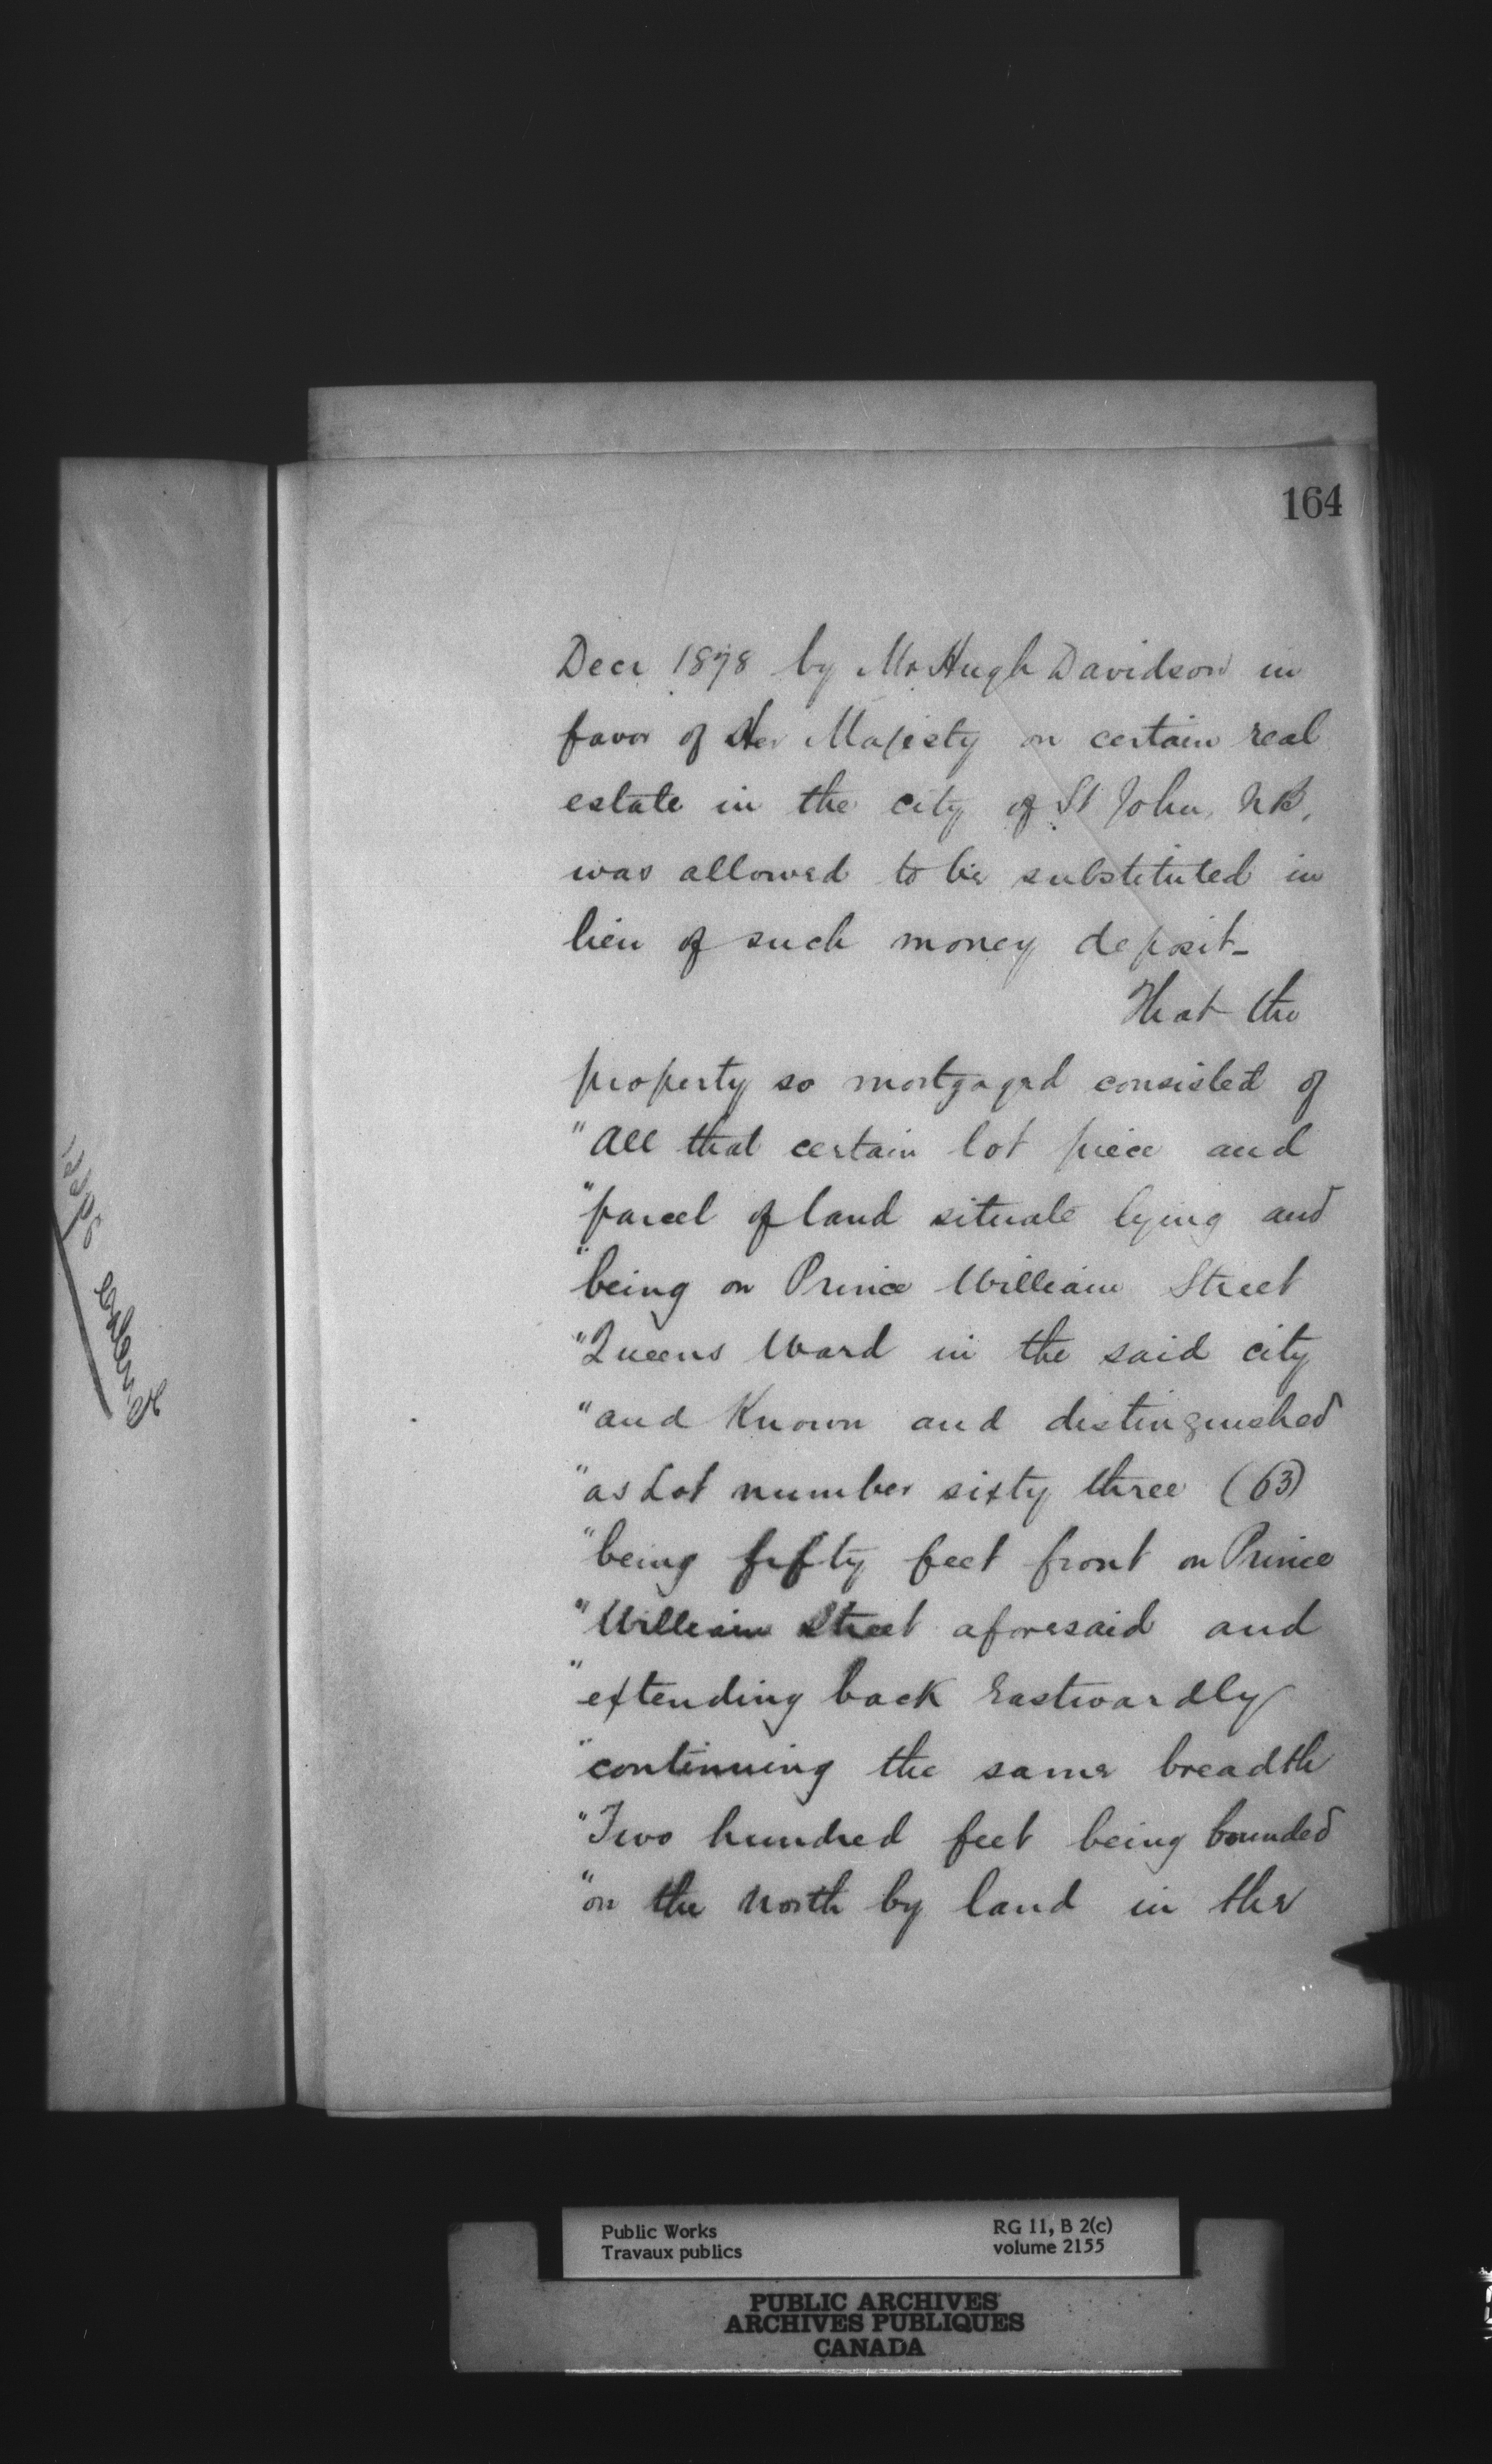 164
Decr 1878 by Mr Hugh Davidson in
favor of Her Majesty on certain real
estate in the city of St John, N.B,
was allowed to be substituted in
lieu of such money deposit_
That the
property so mortgaged consisted of
"All that certain lot piece and
"parcel of land situate lying and
"being on Prince William Street
"Queens Ward in the said city
"and Known and distinguished
"as Lot number sixty three (63)
"being fifty feet front on Prince
"William Street aforesaid and
"extending back Eastwardly
"continuing the same breadth
"Two hundred feet being bounded
"on the North by land in the
Public Works
Travaux publics
RG 11, B 2(c)
volume 2155
PUBLIC ARCHIVES
ARCHIVES PUBLIQUES
CANADA